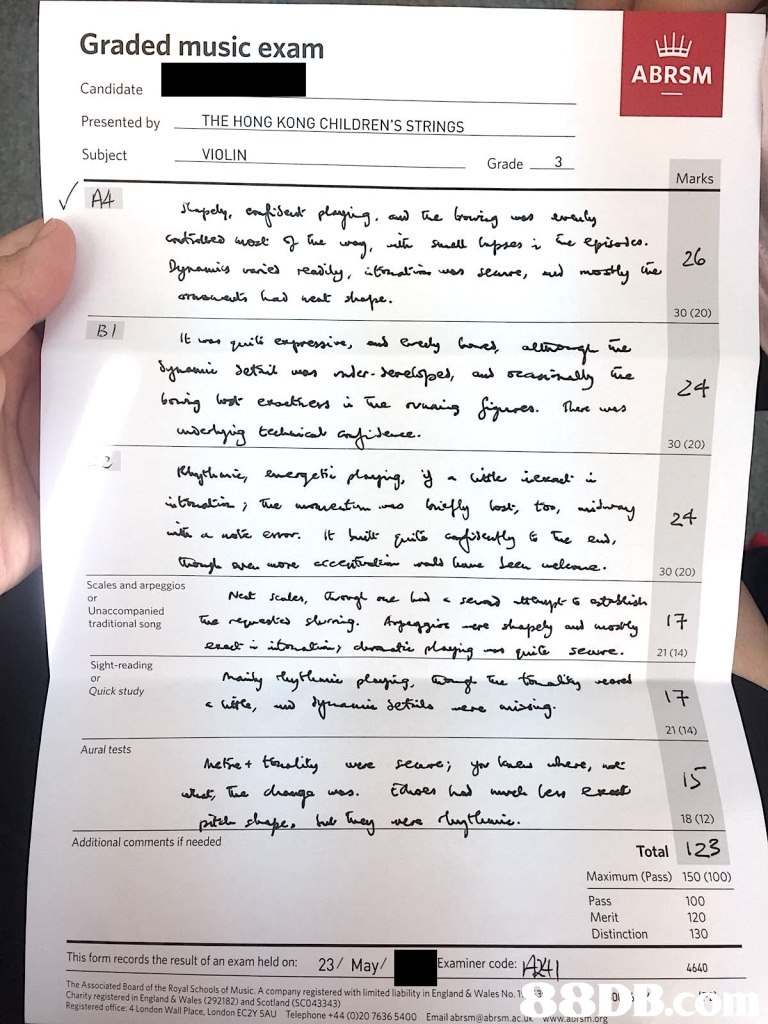 Graded music exam
ABRSM
Candidate
Presented by THE HONG KONG CHILDREN'S STRINGS
Subject VIOLIN
Grade 3
Marks
A4
Shapely, confident playing, and the bowing was evenly
controlled most of the way, with small lapses in the episodes.
Dynamics varied readily, intonation was secure, and mostly the
ornaments had neat shape.
26
30 (20)
B1
It was quite expressive, and evenly bowed, although the
dynamic detail was under-developed, and occasionally the
bowing lost exactness in the running figures. There was
underlying technical confidence.
24
30 (20)
Rhythmic, energetic playing, if a little inexact in
intonation; the momentum was briefly lost, too, midway
with a note error. It built quite confidently to the end,
though even more accentuation would have been welcome.
24
30 (20)
Scales and arpeggios
or
Unaccompanied
traditional song
Neat scales, though one had a second attempt to establish
the requested slurring. Arpeggios were shapely and mostly
exact in intonation; chromatic playing was quite secure.
17
21 (14)
Sight-reading
or
Quick study
Mainly rhythmic playing, though the tonality veered
a little, and dynamic details were missing.
17
21 (14)
Aural tests
Metre + tonality were secure; you knew where, not
what, the change was. Echoes had much less exact
pitch shape, but they were rhythmic.
15
18 (12)
Additional comments if needed
Total 123
Maximum (Pass) 150 (100)
Pass 100
Merit 120
Distinction 130
This form records the result of an exam held on: 23/ May/
Examiner code: A241
4640
The Associated Board of the Royal Schools of Music. A company registered with limited liability in England & Wales No.
Charity registered in England & Wales (292182) and Scotland (SC043343)
Registered office: 4 London Wall Place, London EC2Y 5AU Telephone +44 (0)20 7636 5400 Email abrsm@abrsm.ac.uk www.abrsm.org
88DB.com